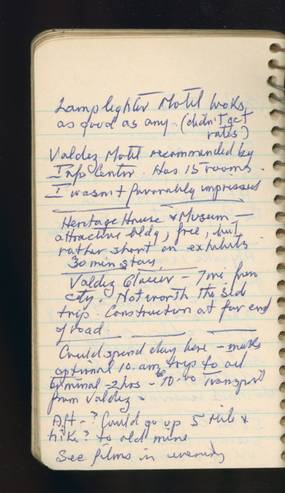 Lamplighter Motel looks
as good as any. (didn't get
rates)
Valdez Motel recommended by
Info Center. Has 15 rooms.
I wasn't favorably impressed
Heritage House & Museum —
attractive bldg, free, but
rather short on exhibits.
30 min stay
Valdez Glacier — 7 mi from
city. Not worth the side
trip. Construction at far end
of road.
Could spend day here — make
optional 10 a.m. trip to oil
terminal - 2 hrs - transpt
from Valdez.
Aft - ? Could go up 5 Mile &
hike? to old mine
See films in evening